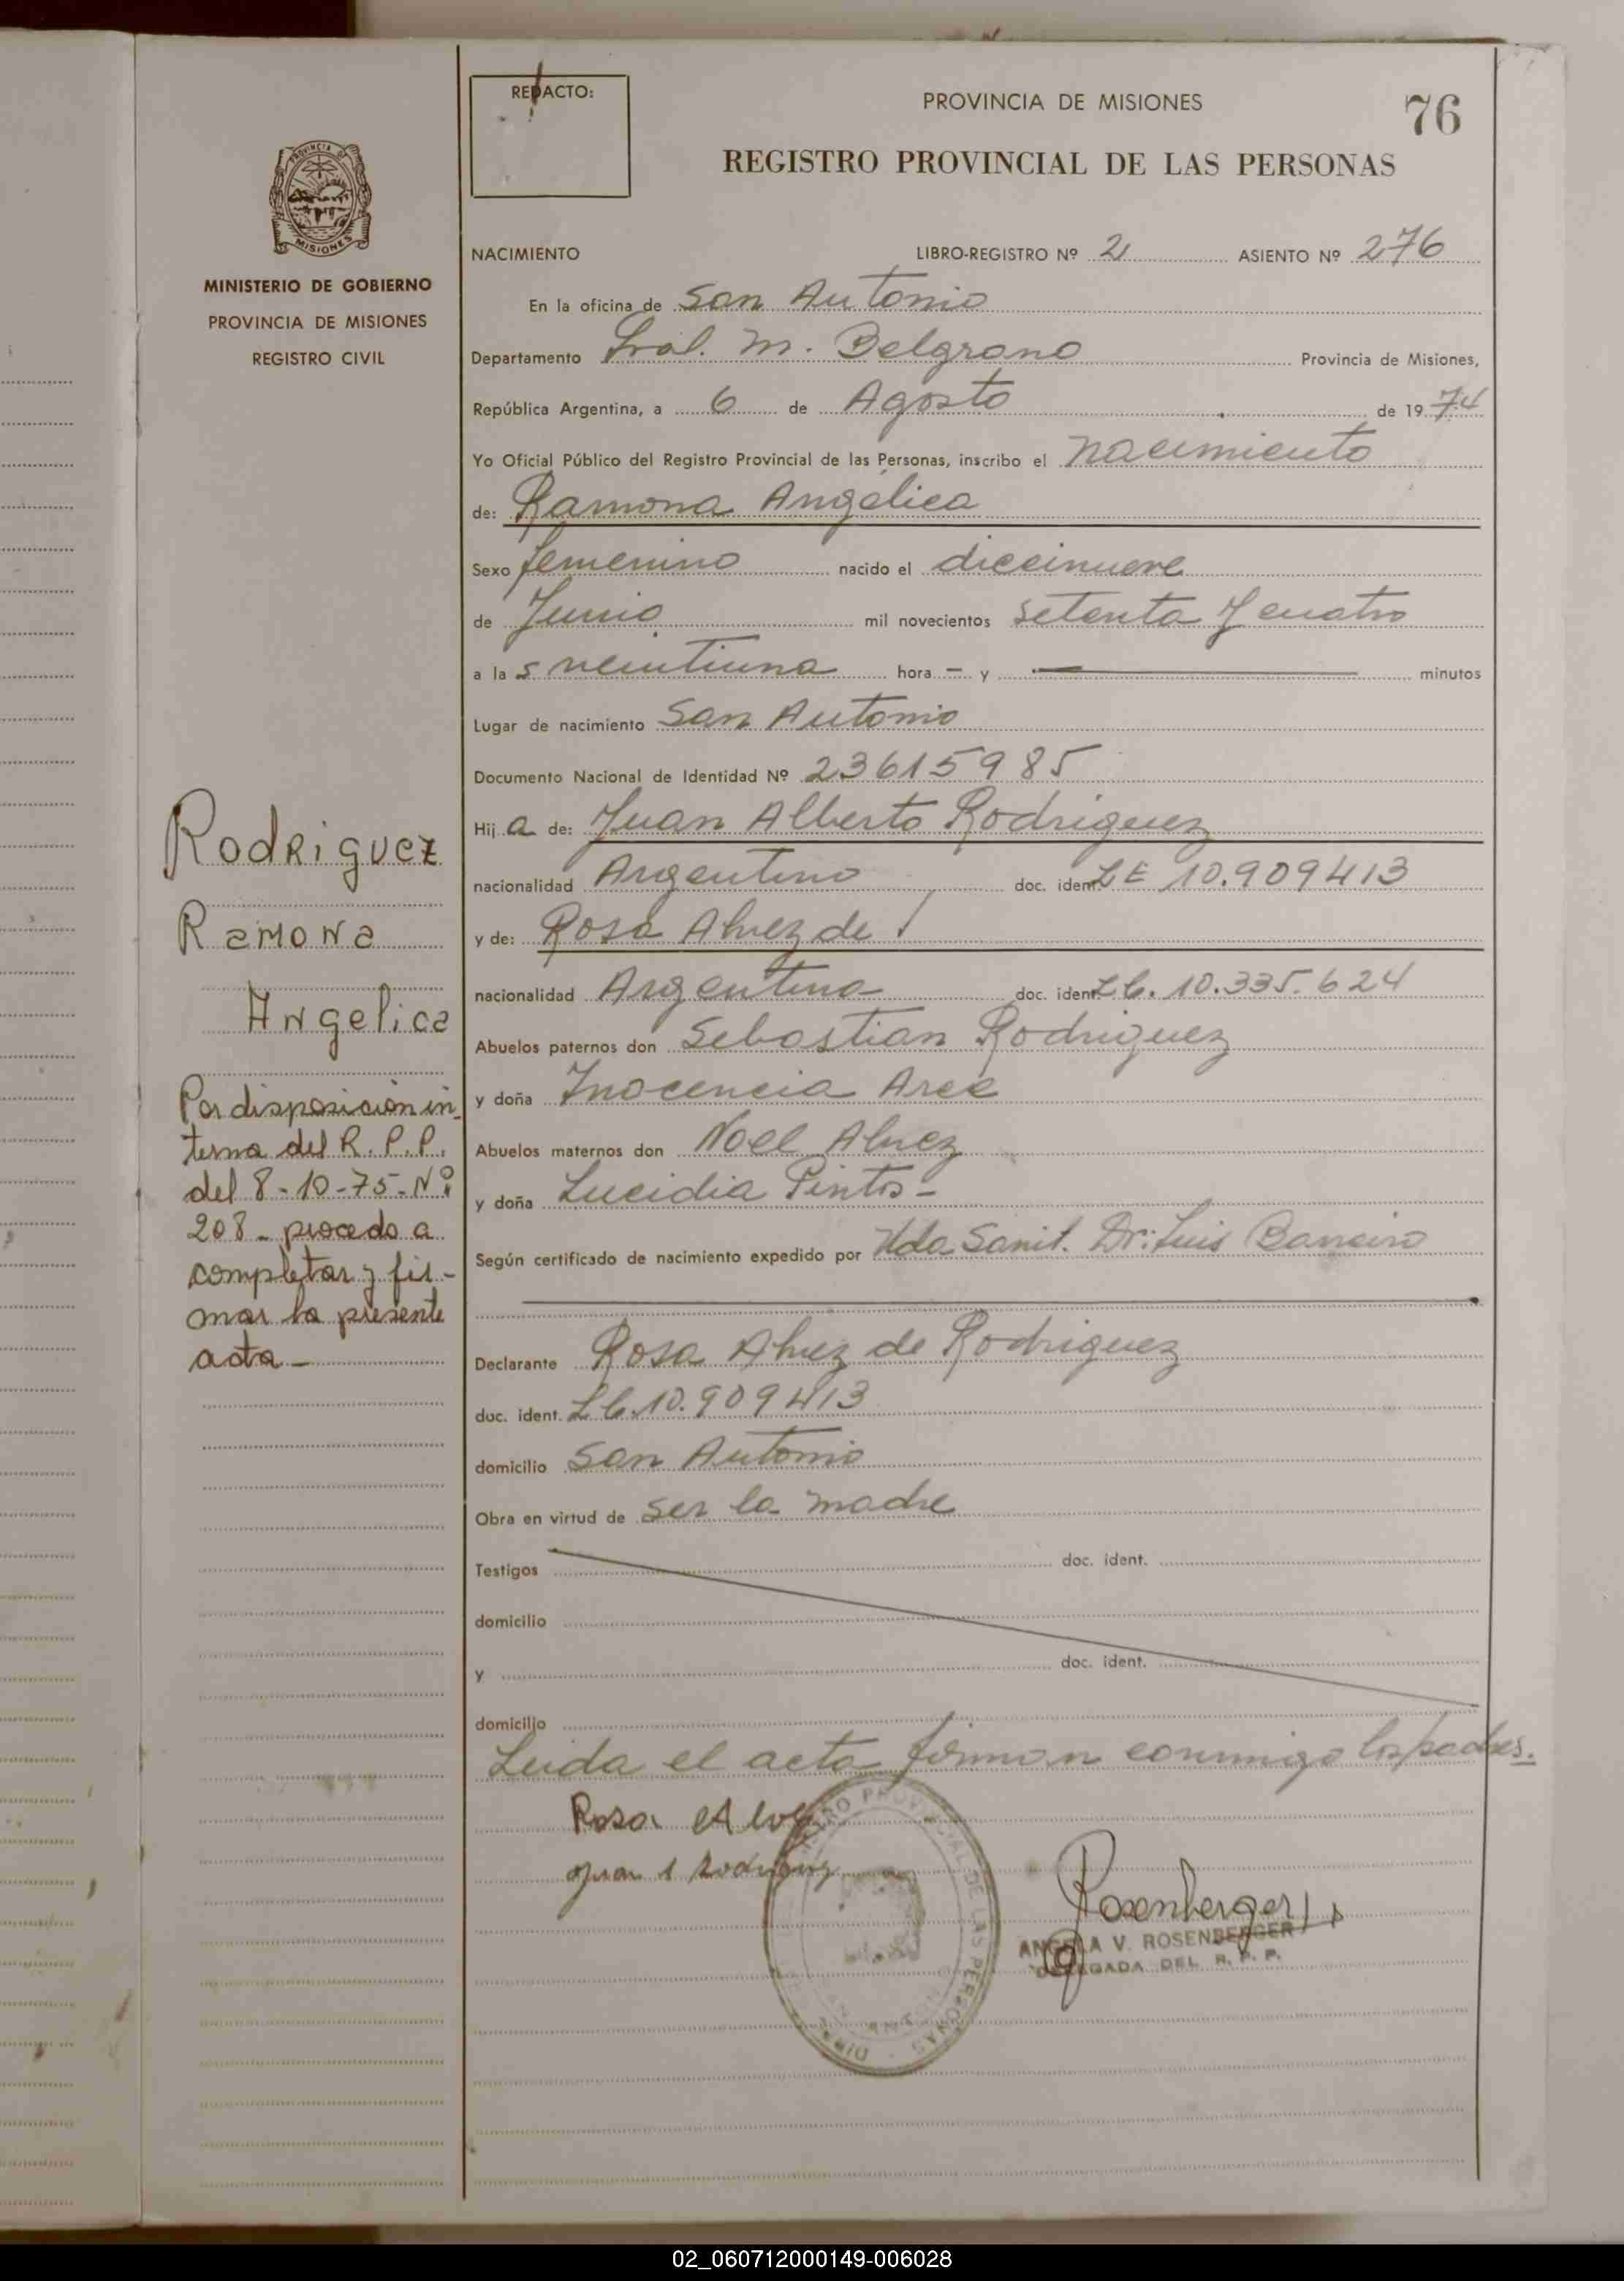 REDACTO:
PROVINCIA DE MISIONES
76
REGISTRO PROVINCIAL DE LAS PERSONAS
PROVINCIA DE
MISIONES
MINISTERIO DE GOBIERNO
PROVINCIA DE MISIONES
REGISTRO CIVIL
NACIMIENTO LIBRO-REGISTRO Nº 2 ASIENTO Nº 276
En la oficina de San Antonio
Departamento Gral. M. Belgrano Provincia de Misiones,
República Argentina, a 6 de Agosto de 1974
Yo Oficial Público del Registro Provincial de las Personas, inscribo el nacimiento
de: Ramona Angélica
Sexo femenino nacido el diecinueve
de Junio mil novecientos setenta y cuatro
a las veintiuna hora - y — minutos
Lugar de nacimiento San Antonio
Documento Nacional de Identidad Nº 23615985
Hija de: Juan Alberto Rodriguez
nacionalidad Argentino doc. ident. LE 10.909413
y de: Rosa Alvez de
nacionalidad Argentina doc. ident. L C. 10.335.624
Abuelos paternos don Sebastian Rodriguez
y doña Inocencia Arce
Abuelos maternos don Noel Alvez
y doña Lucidia Pintos -
Según certificado de nacimiento expedido por Uda Sanit. Dr: Luis Barreiro
Declarante Rosa Alvez de Rodriguez
doc. ident. L C. 10.909413
domicilio San Antonio
Obra en virtud de ser la madre
Testigos doc. ident.
domicilio
y doc. ident.
domicilio
Leida el acta firman conmigo los padres.
Rosa Alvez
Juan A Rodriguez
Rosenberger
ANGELA V. ROSENBERGER
DELEGADA DEL R. P. P.
REGISTRO PROVINCIAL DE LAS PERSONAS
Rodriguez
Ramona
Angelica
Por disposición in-
terna del R. P. P.
del 8-10-75-Nº
208- procedo a
completar y fir-
mar la presente
acta-
02_060712000149-006028